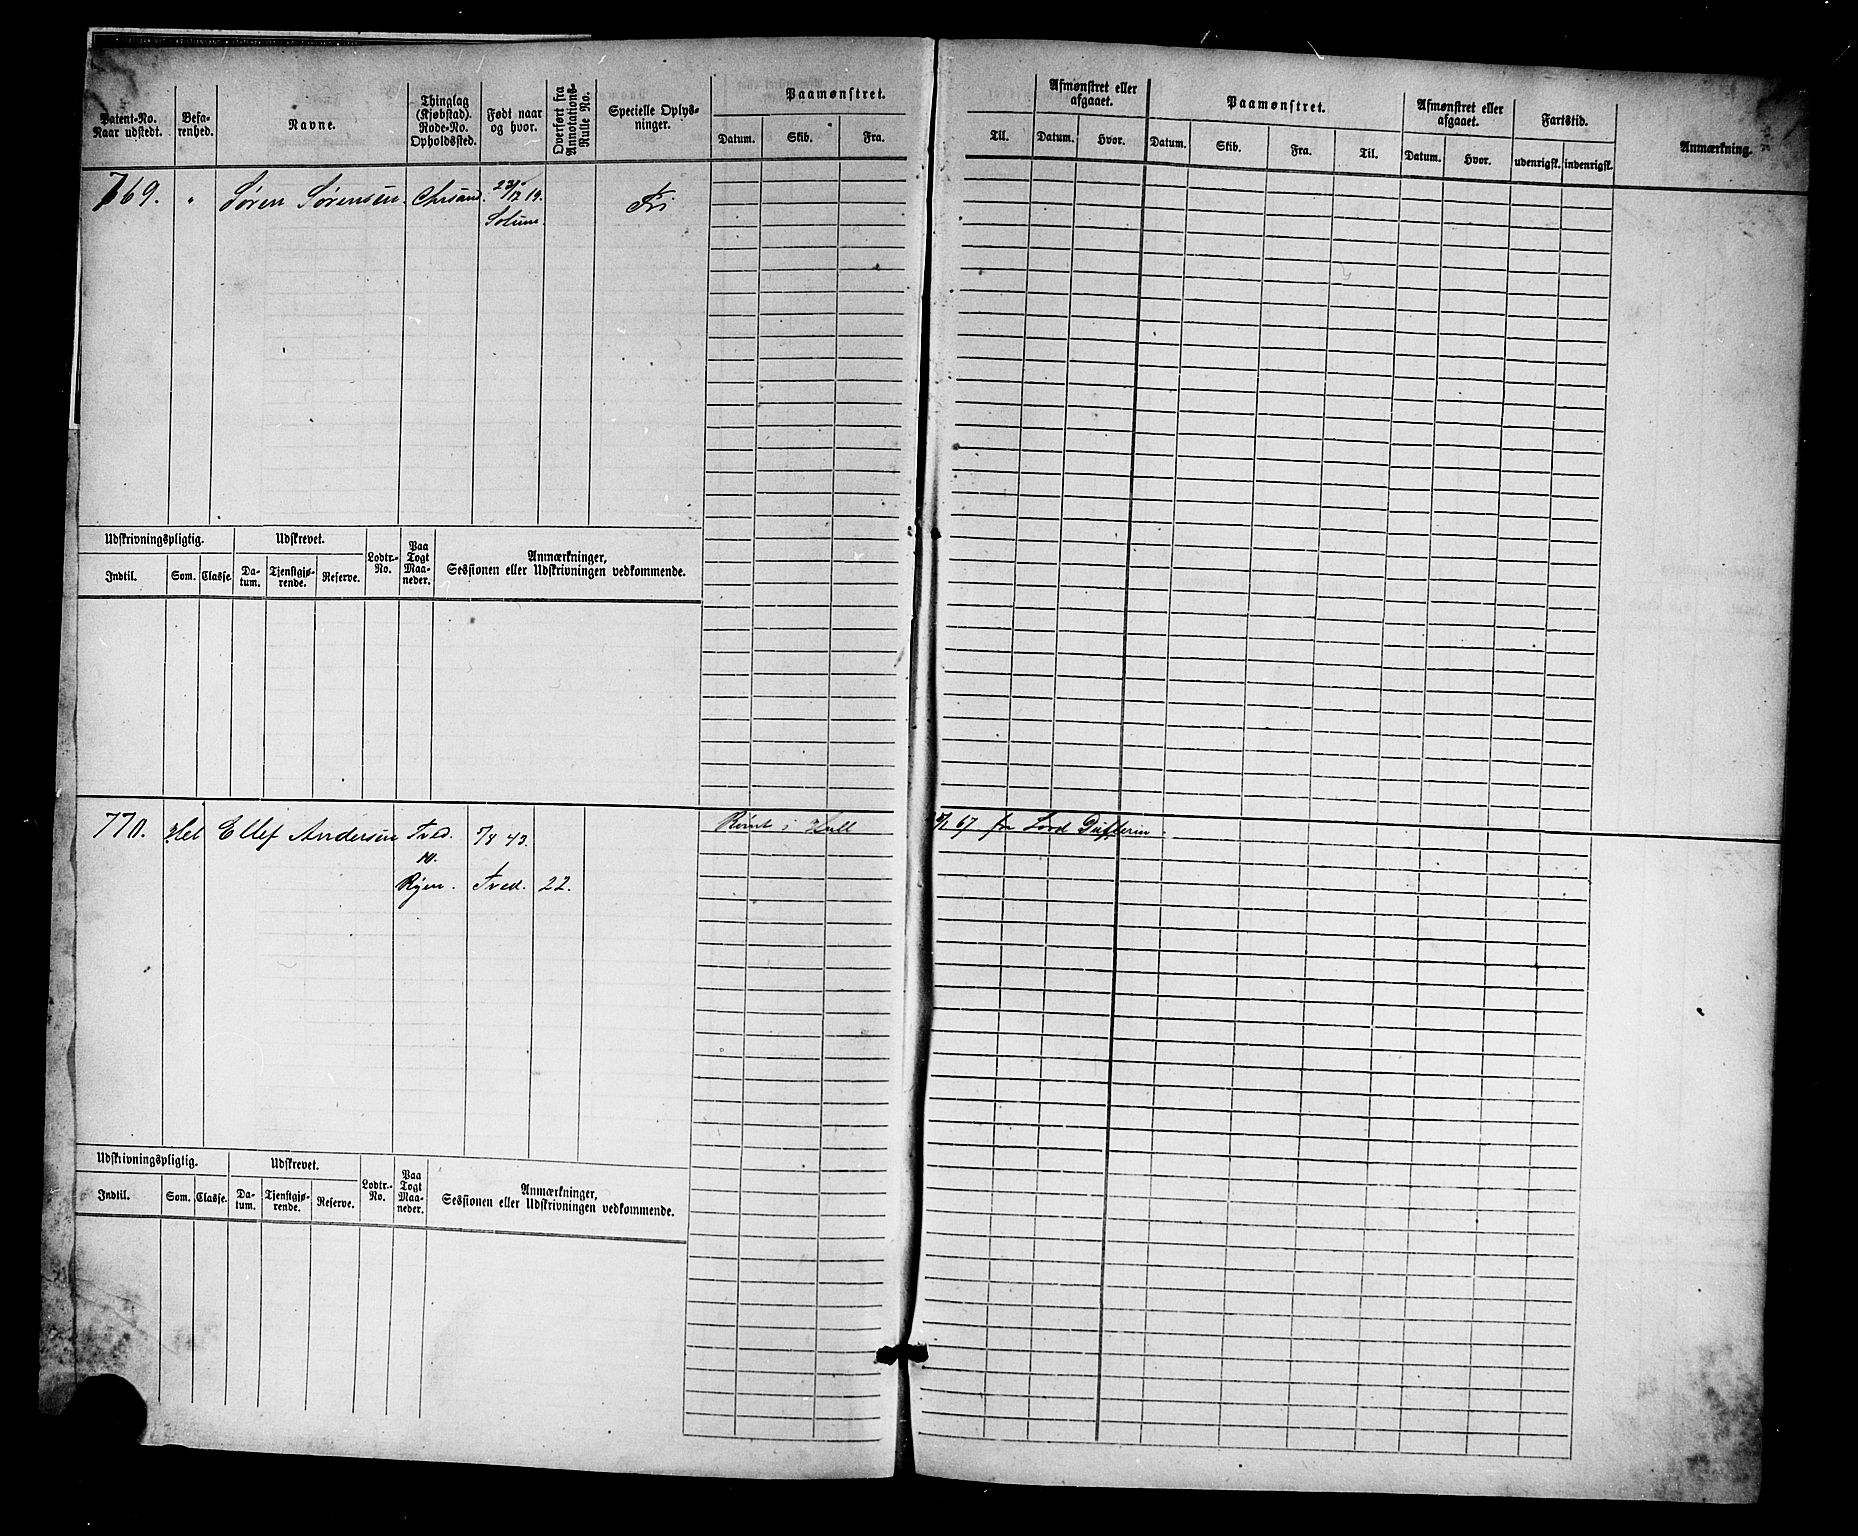 Patent-No. Naar udstedt.
Befarenhed.
Navne.
Thinglag (Kjøbstad). Rode-No. Opholdssted.
Født naar og hvor.
Overført fra Annotations-Rulle No.
Specielle Oplysninger.
Paamønstret.
Datum. Skib. Fra.
Til.
Afmønstret eller afgaaet.
Datum. Hvor.
Paamønstret.
Datum. Skib. Fra. Til.
Afmønstret eller afgaaet.
Datum. Hvor.
Fartstid.
udenrigsk. indenrigsk.
Anmærkning.
769. " Søren Sørensen. Chrsand. 23/12 19. Fri
Solum.
Udskrivningspligtig. Udskrevet. Lodtr.-No. Paa Togt Maaneder. Anmærkninger, Sessionen eller Udskrivningen vedkommende.
Indtil. Som. Classe. Datum. Tjenstgjørende. Reserve.
770. Hel Ellef Andersen Tved. 7/8 43. Rømt i Hull 67 fra Lord Dufferin
10.
Ryen. Tved. 22.
Udskrivningspligtig. Udskrevet. Lodtr.-No. Paa Togt Maaneder. Anmærkninger, Sessionen eller Udskrivningen vedkommende.
Indtil. Som. Classe. Datum. Tjenstgjørende. Reserve.